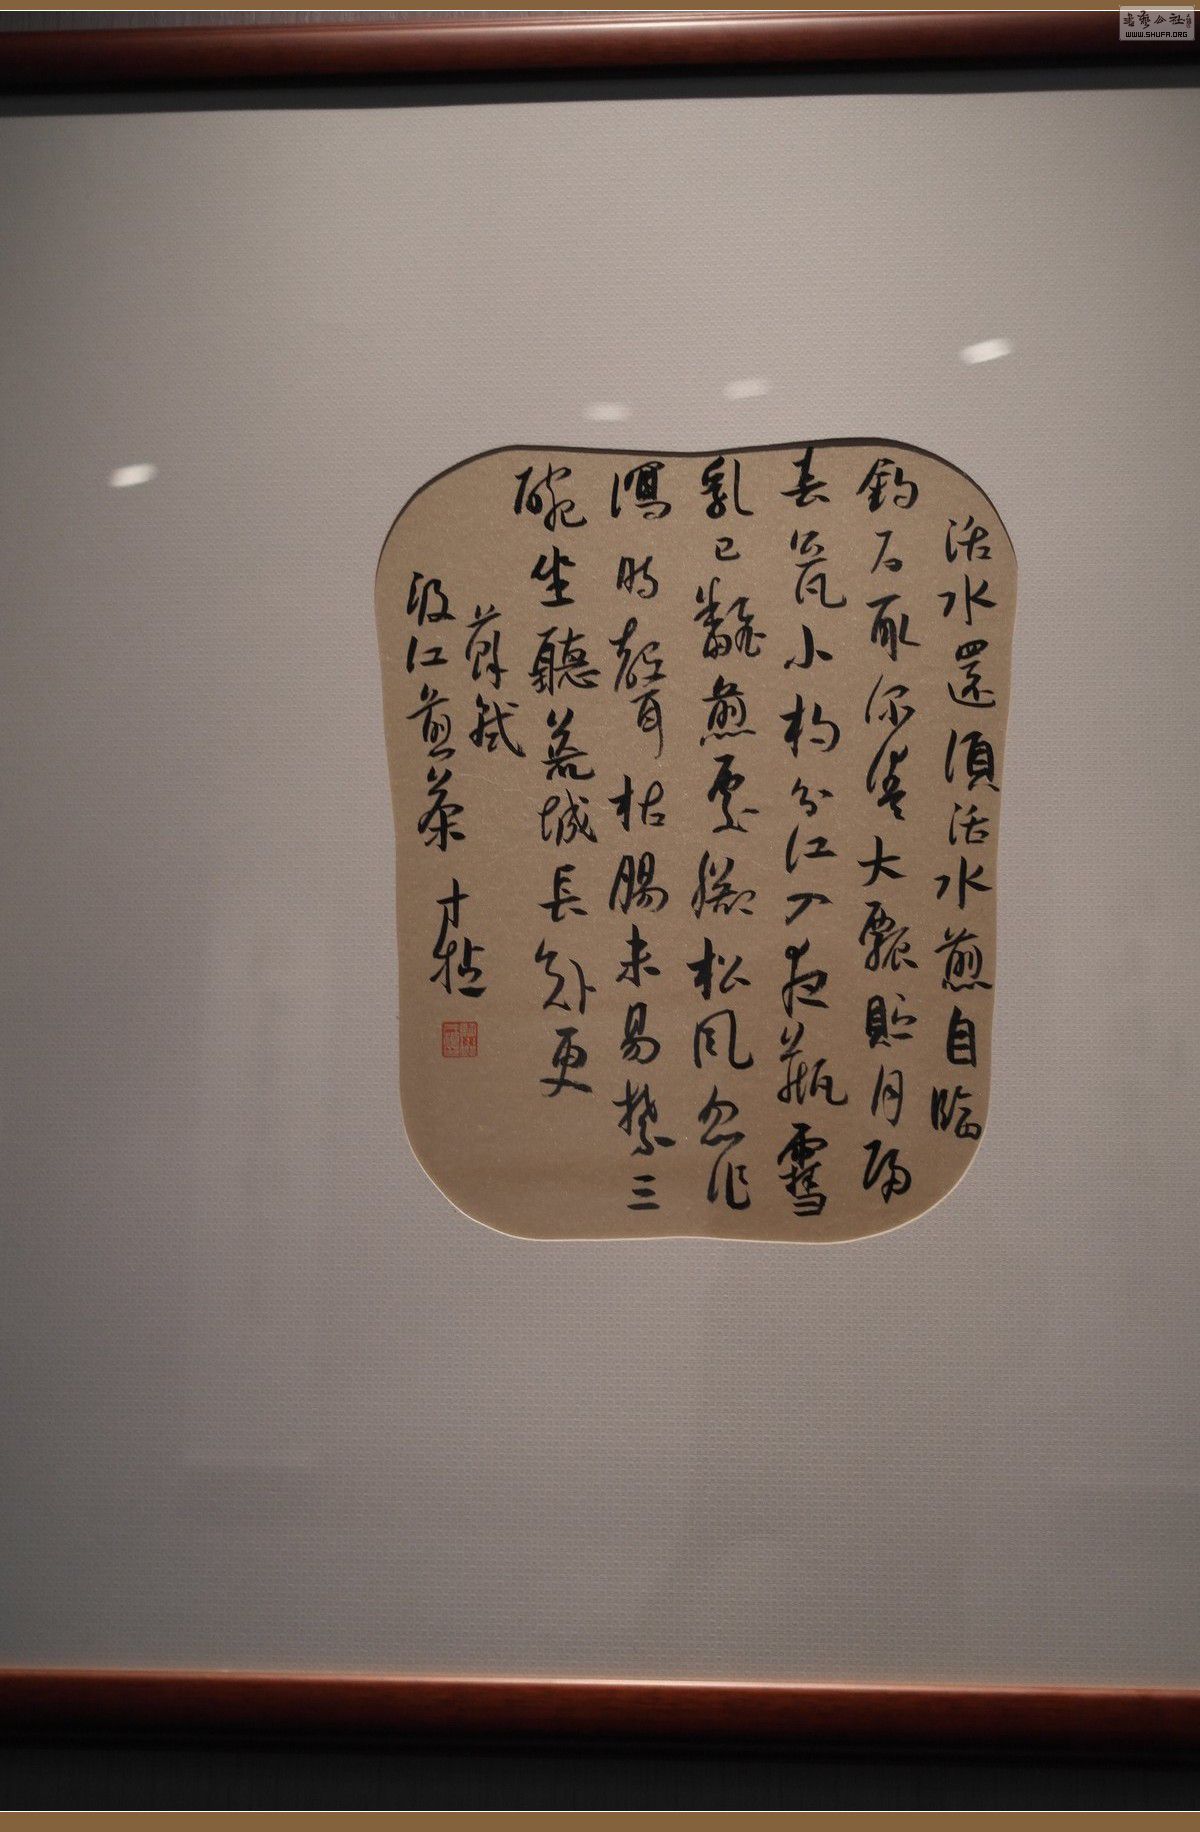 活水還須活水煎自臨
釣石取深清大瓢貯月歸
春瓮小杓分江入夜瓶雪
乳已飜煎處腳松風忽作
瀉時聲枯腸未易禁三
碗坐聽荒城長短更
蘇軾
汲江煎茶
書藝公社
WWW.SHUFA.ORG